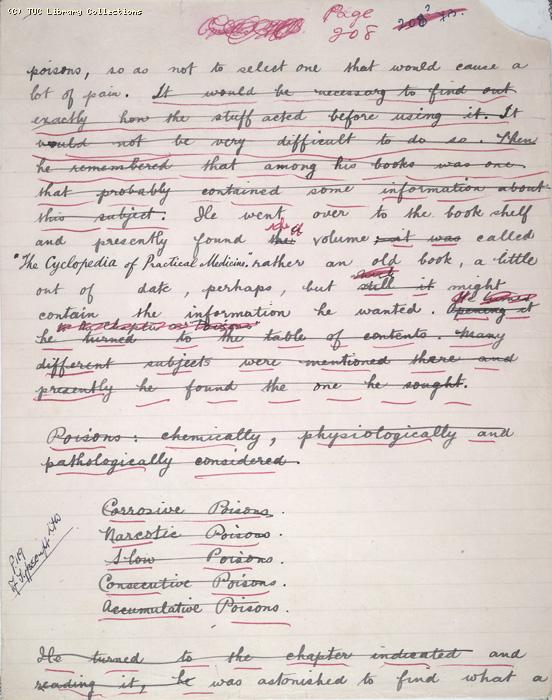 (C) TUC Library Collections
Page
208
poisons, so as not to select one that would cause a
lot of pain. It would be necessary to find out
exactly how the stuff acted before using it. It
would not be very difficult to do so. Then
he remembered that among his books was one
that probably contained some information about
this subject. He went over to the book shelf
and presently found the volume it was called
"The Cyclopedia of Practical Medicine." rather an old book, a little
out of date, perhaps, but still it might
contain the information he wanted. Opening it
he turned to the table of contents. Many
different subjects were mentioned there and
presently he found the one he sought.
Poisons: chemically, physiologically and
pathologically considered.
Corrosive Poisons.
Narcotic Poisons.
Slow Poisons.
Consecutive Poisons.
Accumulative Poisons.
He turned to the chapter indicated and
reading it, he was astonished to find what a